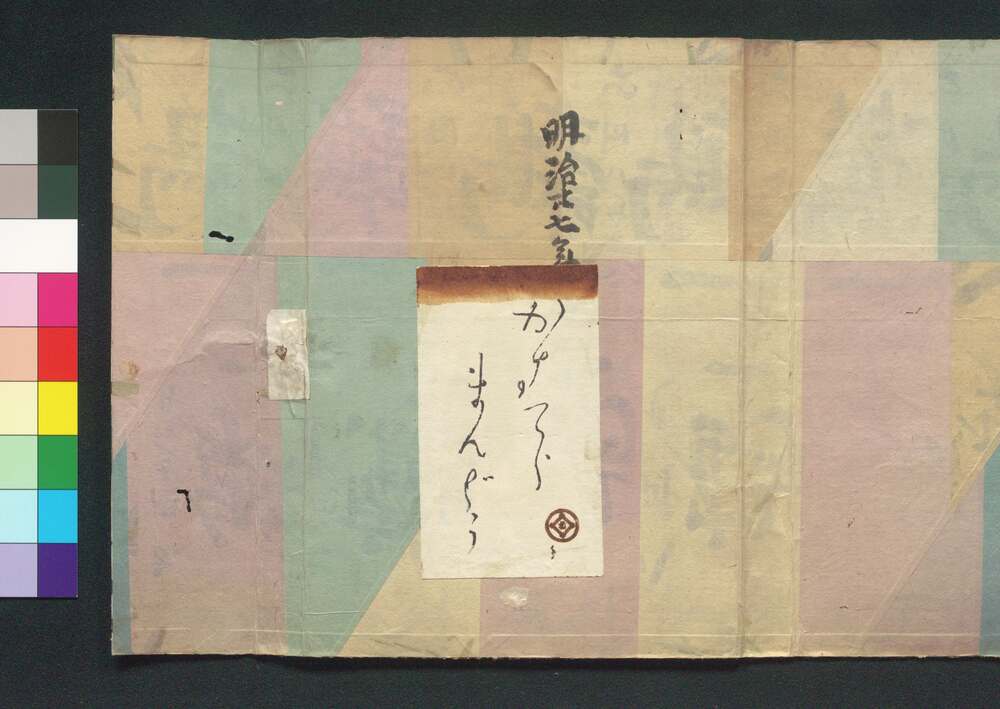 明治廿七年
かすてら
まんぢう